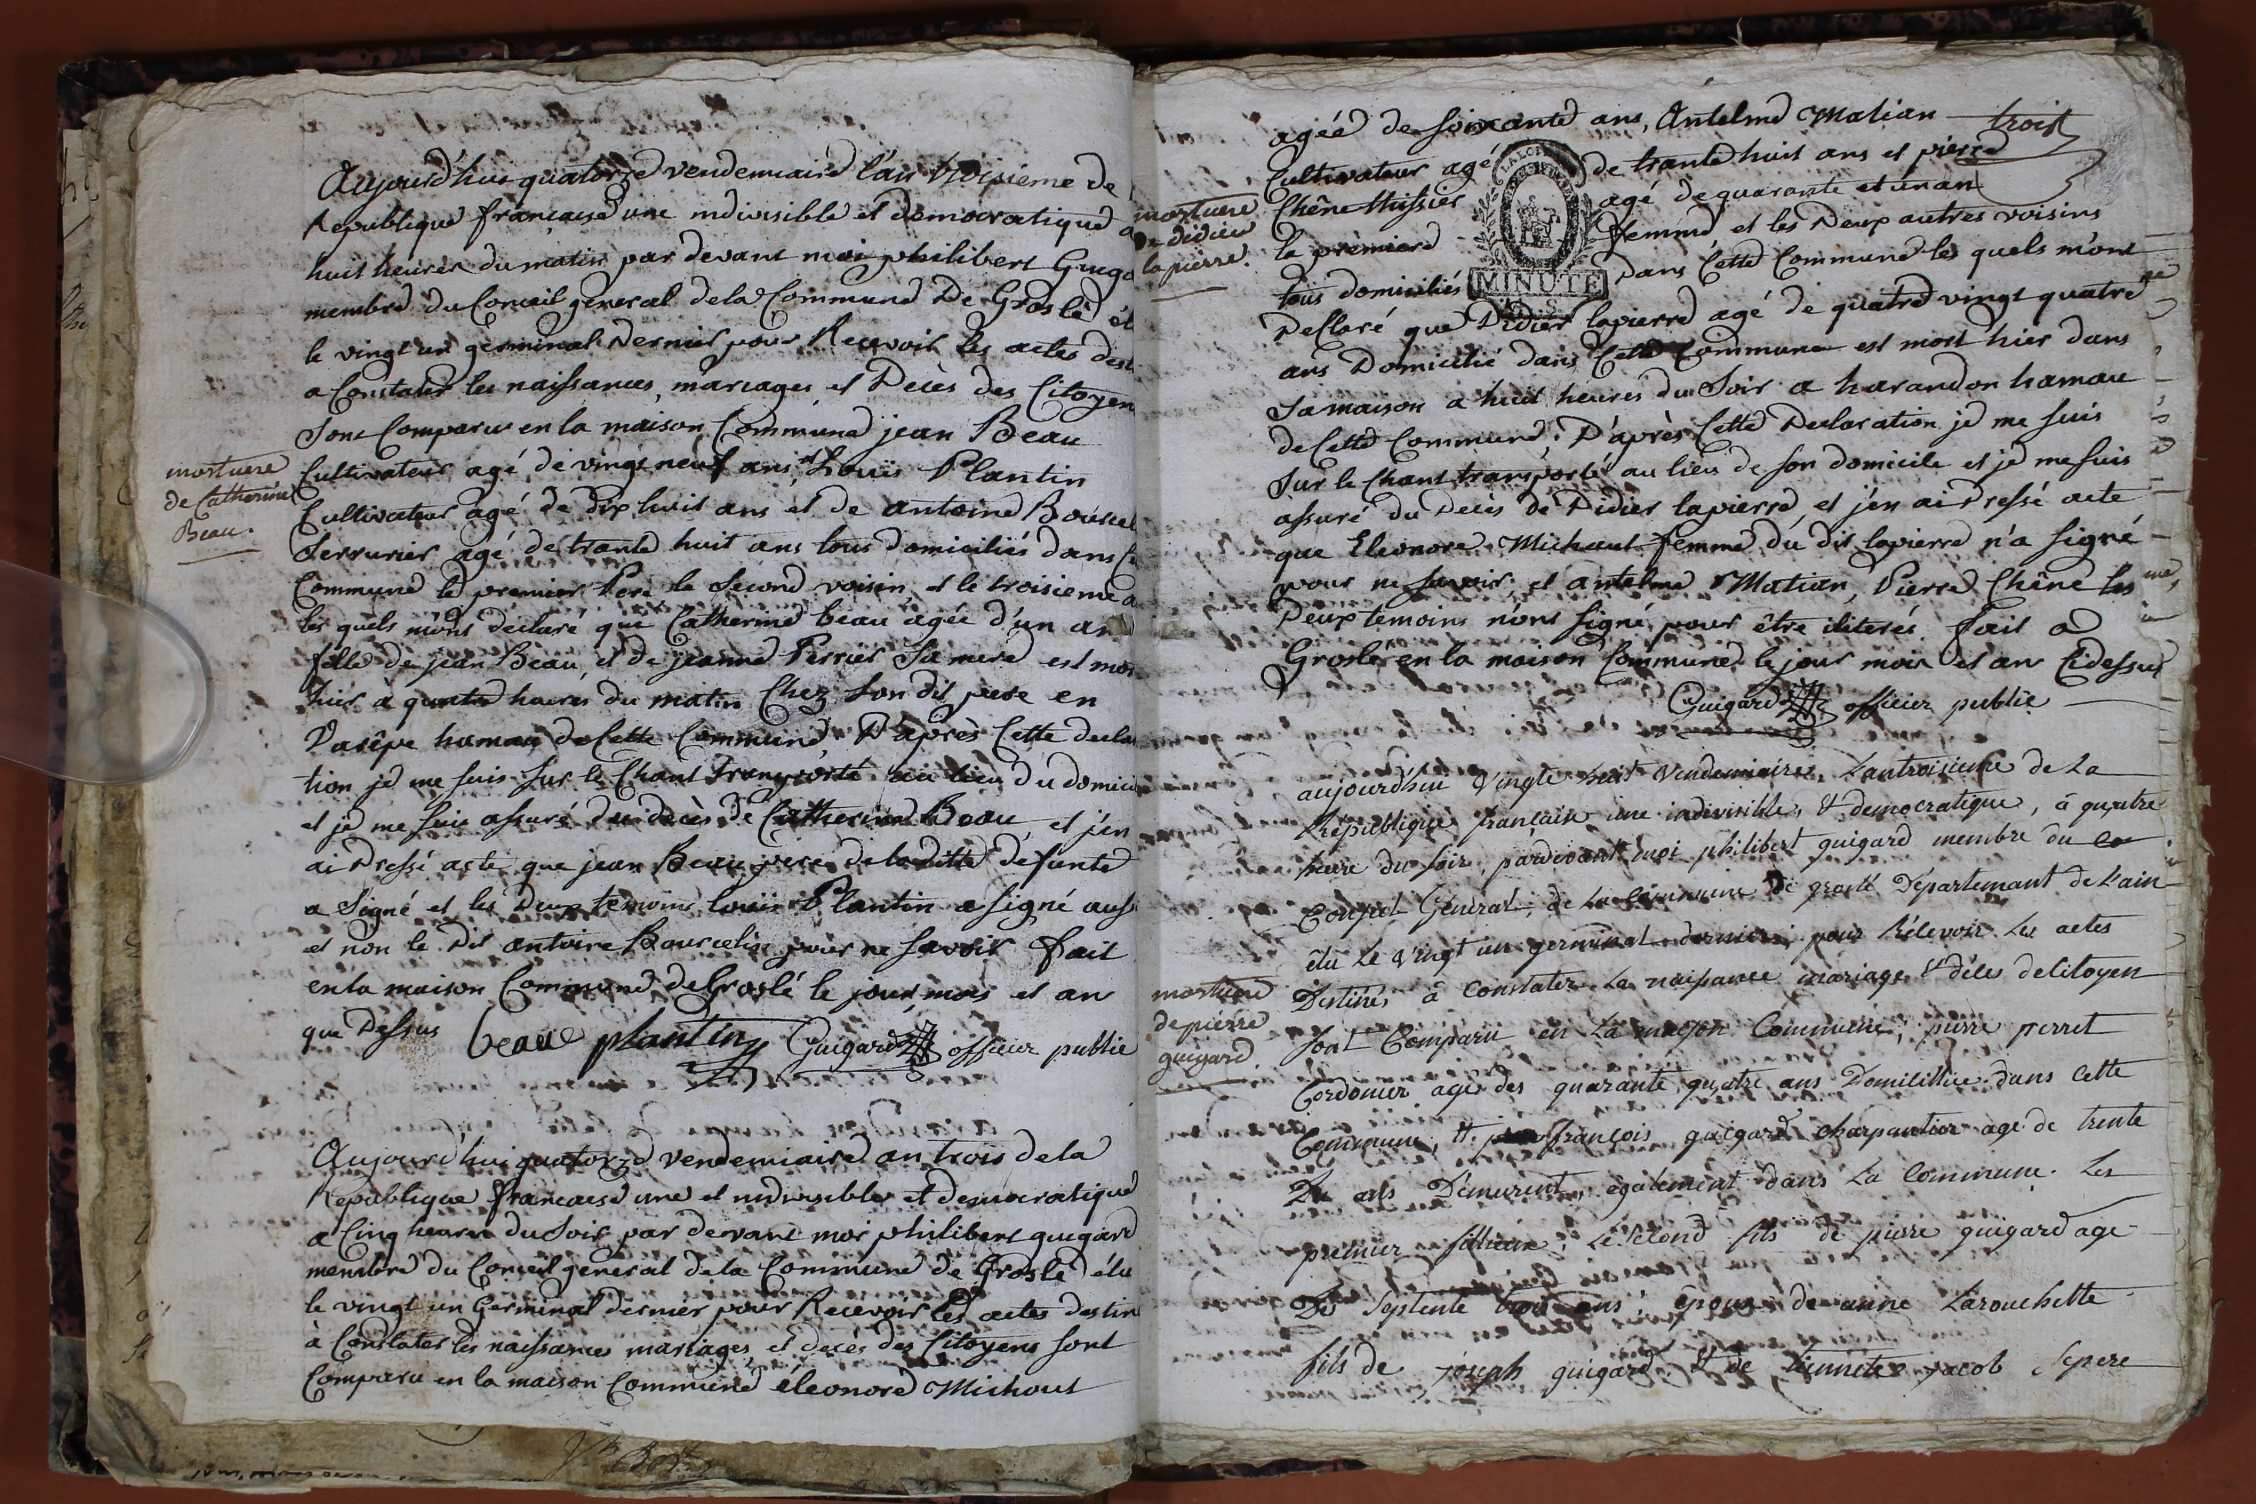 Aujourd'hui quatorze vendemiaire l'an troisième de
Republique française une indivisible et democratique a
huit heures du matin par devant moi philibert Guiga
membre du Conseil general de la Commune De Groslé él
le vingt un germinal dernier pour Recevoir les actes dest
a Constater les naissances, mariages et Decès des Citoyen
Sont Comparus en la maison Commune jean Beau
mortuere
de Catherine
Beau.
Cultivateur agé de vingt neuf ans, et Louis Plantin
Cultivateur agé de dix huit ans et de antoine Bourcel
Serrurier agé de trante huit ans tous domiciliés dans C
Commune le premier Pere le Second voisin et le troisieme a
les quels m'ont declaré que Catherine beau agée d'un an
fille de jean Beau et de jeanne Perrier Sa mere est mor
hier a quatre heures du matin Chez Son dit pere en
Varêpe hamau de Cette Commune, D'après Cette decla
tion je me suis sur le Chant Transporté au lieu du domici
et je me suis assuré du decès de Catherine Beau et j'en
ai Dressé acte que jean Beau pere de la ditte defunte
a Signé et les Deux temoins louis Plantin a signé auss
et non le Dit antoine Bourcelin pour ne Savoir fait
en la maison Commune de Groslé le jour, mois et an
que Dessus beau plantin Guigard officier public
Aujourd'hui quatorze vendemiaire an trois de la
Republique francaise une et indivisible et democratique
a Cinq heures du Soir par devant moi philibert guigard
membre du Conseil general de la Commune de Groslé élu
le vingt un Germinal dernier pour Recevoir les actes destin
à Constater les naissances mariages et decès des Citoyens sont
Comparu en la maison Commune éleonore Michout
agée de soixante ans, Antelme Matian trois
Cultivateur agé de trante huit ans et pierre
mortuere
De didier
lapierre.
Chêne Huissier agé de quarante et un an
la premiere femme et les Deux autres voisins
tous domiciliés Dans Cette Commune les quels m'ont
MINUTE
Declaré que Didier lapierre agé de quatre vingt quatre
ans Domicilié dans Cette Commune est mort hier dans
Sa maison a huit heures du Soir a harandon hamau
de Cette Commune, D'après Cette Declaration je me suis
Sur le Chant transporté au lieu de son domicile et je me suis
assuré du Decès de Didier lapierre et j'en ai Dressé acte
que Eleonore Michaut femme du dit lapierre n'a Signé
pour ne Savoir, et antelme Matian, Pierre Chêne les
Deux temoins n'ont signé pour être iliterés fait a
Groslé en la maison Commune le jour mois et an Cidessus
Guigard officier public
aujourd'hui Vingte huit Vendemiaire, L'antroisieme de La
Republique française une indivisible, Et democratique, à quatre
heure du soir, pardevant moi philibert guigard membre du co
Conseil Général, de La Commune de groslé Departemant de L'ain
élu Le Vingt un germinal dernier pour Récevoir Les actes
mortuere
de pierre
guigard.
Destinés à Constater La naissance mariage Et décés decitoyen
Sont Comparu en La maison Commune, pierre perret
Cordonier agé des quarante quatre ans Domicilliée dans Cette
Commune, Et françois guigard charpantier agé de trente
ans Démeurent également dans La Commune. Les
premier Le second fils de pierre guigard age
Des Septente trois ans, epoux de anne Larouchette
fils de joseph guigard Et de jacob Sepere